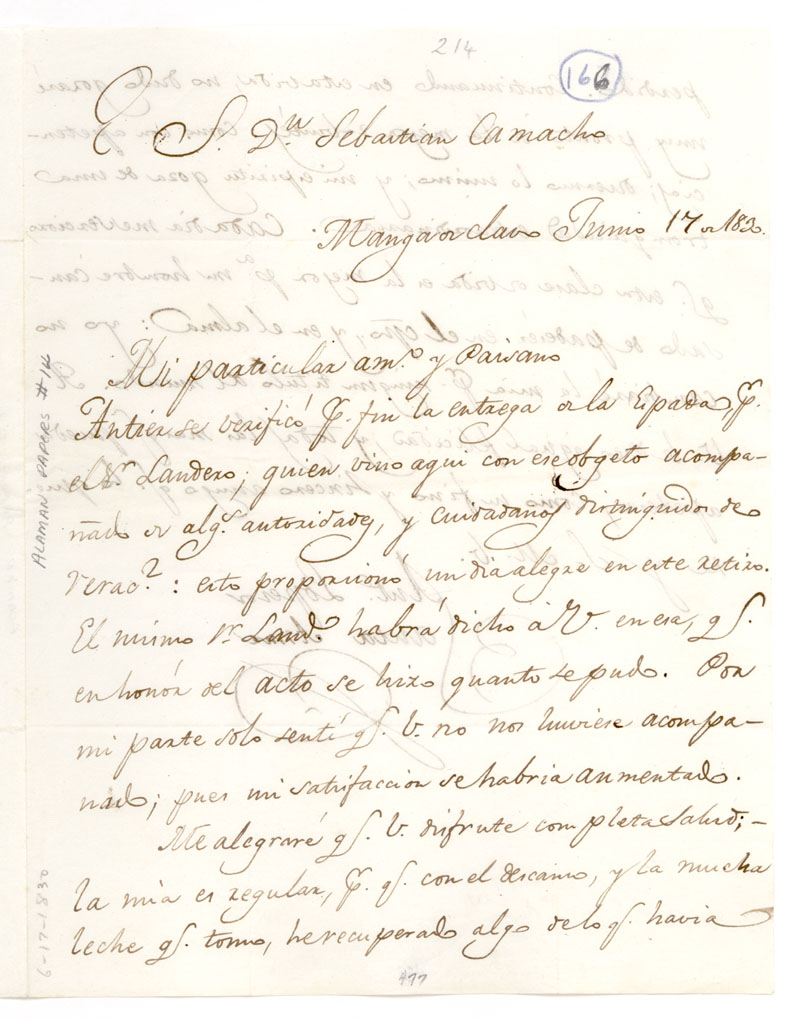 214
166
E. S. Dn. Sebastian Camacho
Manga de clavo Junio 17 de 1830.
Mi particular amo. y Paisano
Antier se verificó pr. fin la entrega de la Espada, pr.
el Sr. Landero; quien vino aqui con ese obgeto acompa-
ñado de algs. autoridades, y cuidadanos distinguidos de
Veracz.: esto proporcionó un dia alegre en este retiro.
El mismo Sr. Lando. habrá dicho á V. en esa, qe.
en honór del acto se hizo quanto se pudo. Por
mi parte solo sentí qe. V. no nos huviese acompa-
ñado; pues mi satisfaccion se habria aumentado.
Me alegraré qe. V. disfrute completa salud;-
la mia es regular, pr. qe. con el descanso, y la mucha
leche qe. tomo, he recuperado algo de lo qe. havia
477
ALAMAN PAPERS #14
6-17-1830